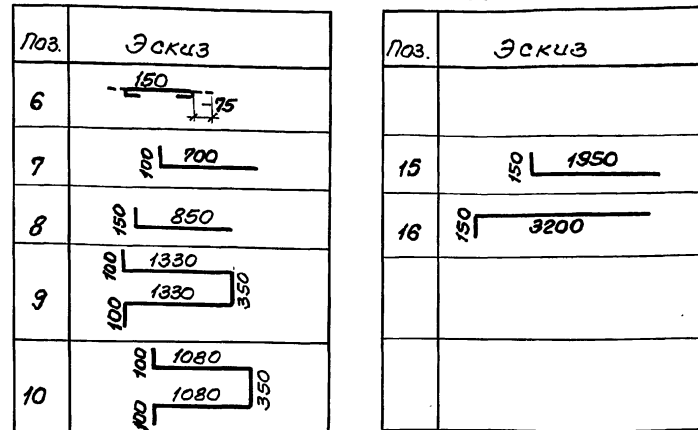 Поз. Эскиз
6 150 75
7 100 700
8 150 850
9 100 1330
100 1330 350
10 100 1080
100 1080 350
Поз. Эскиз
15 150 1950
16 150 3200